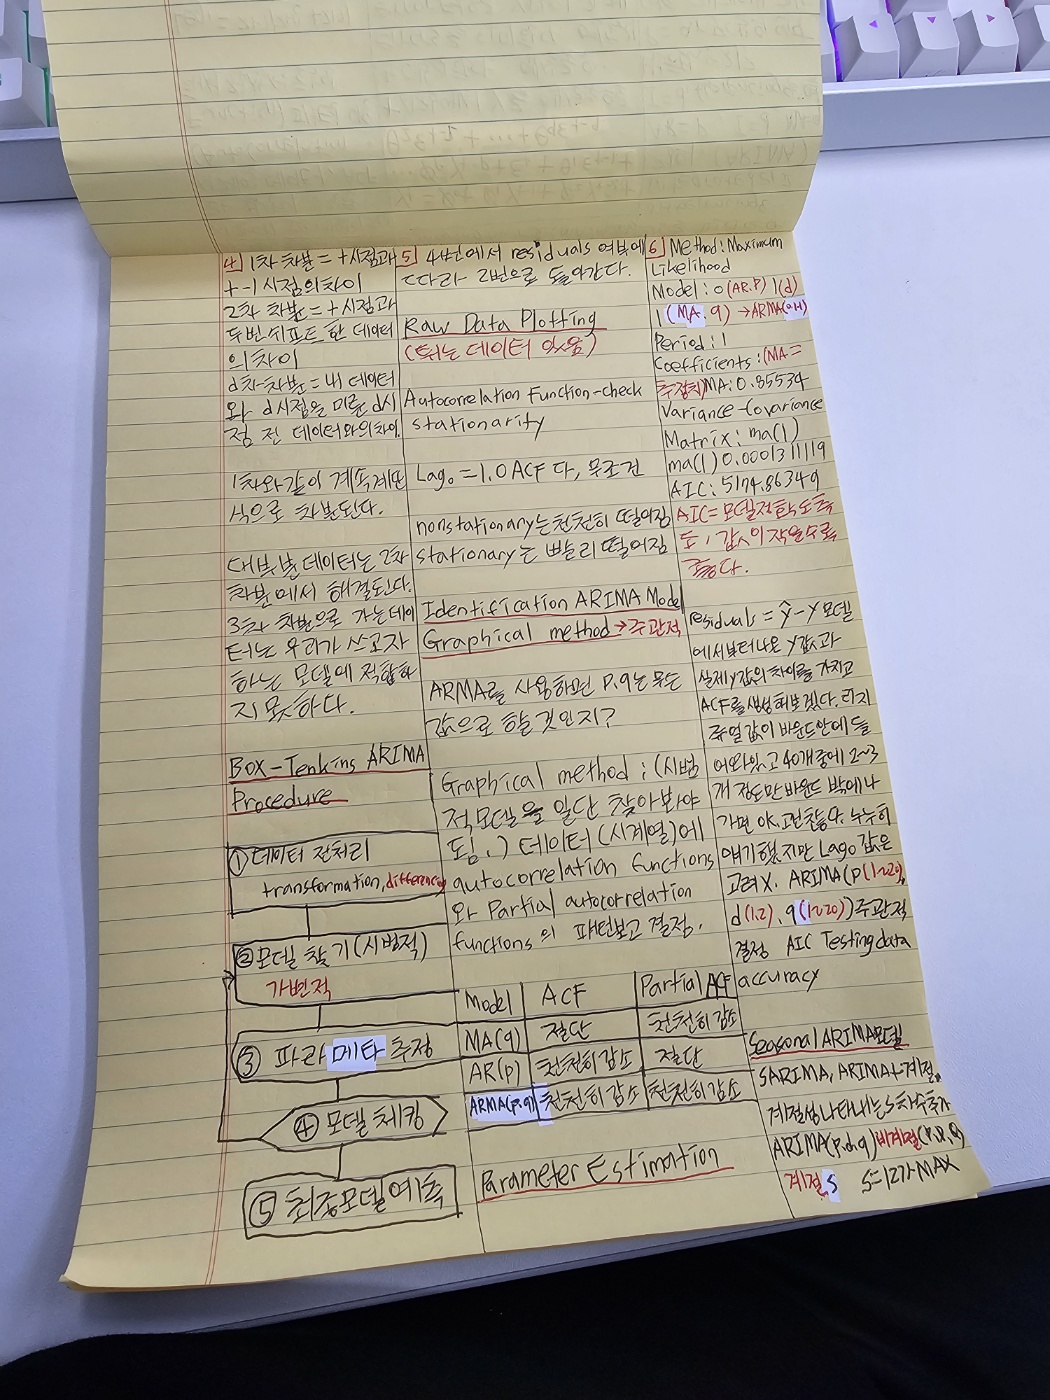 4 1차 차분 = t시점과
t-1 시점의 차이
2차 차분 = t시점과
두번 쉬프트 한 데이터
의 차이
d차 차분 = 내 데이터
와 d시점을 미룬 d시
점 전 데이터와의 차이.
1차와 같이 계속 계단
식으로 차분된다.
대부분 데이터는 2차
차분에서 해결된다.
3등차 차분으로 가는 데이
터는 우리가 쓰고자
하는 모델에 적합하
지 못하다.
BOX-Jenkins ARIMA
Procedure
① 데이터 전처리
transformation, difference
② 모델 찾기 (시범적)
가변적
③ 파라메타 추정
④ 모델 체킹
⑤ 최종모델 예측
5 4번에서 residuals 여부에
따라 2번으로 돌아간다.
Raw Data Plotting
(튀는 데이터 있음)
Autocorrelation Function-check
stationarity
Lag₀ = 1.0 ACF 다, 무조건
nonstationary는 천천히 떨어짐
stationary는 빨리 떨어짐
Identification ARIMA Model
Graphical method → 주관적
ARMA를 사용하면 P.q는 무슨
값으로 할 것인지?
Graphical method : (시범
적 모델을 일단 찾아봐야
됨.) 데이터 (시계열)에
autocorrelation functions
와 Partial autocorrelation
functions의 패턴보고 결정.
Model ACF Partial ACF
MA(q) 절단 천천히 감소
AR(p) 천천히 감소 절단
ARMA(p.q) 천천히 감소 천천히 감소
Parameter Estimation
6 Method : Maximum
Likelihood
Model : 0 (AR.P) 1(d)
1 (MA. q) → ARMA(0.1.1)
Period : 1
Coefficients : (MA =
추정치) MA : 0.85534
Variance-Covariance
Matrix : ma(1)
ma(1) 0.0001311119
AIC : 5174.86349
AIC = 모델 적합도 측
도, 값이 작을수록
좋다.
residuals = ŷ - y 모델
에서부터 나온 y값과
실제 y값의 차이를 가지고
ACF를 생성해보겠다. 리지
쥬얼 값이 바운드안에 들
어와있고 40개 중에 2~3
개 정도만 바운드 밖에 나
가면 OK, 괜찮다. 누누히
얘기했지만 Lag0 값은
고려 X. ARIMA(p(1~20),
d(1,2), q(1~20)) 주관적
결정 AIC Testing data
accuracy
Seasonal ARIMA모델
SARIMA, ARIMA+계절.
계절성 나타내는 S차수 추가
ARIMA(P,d,q) 비계절 (P,D,Q)
계절 S S=12가 MAX